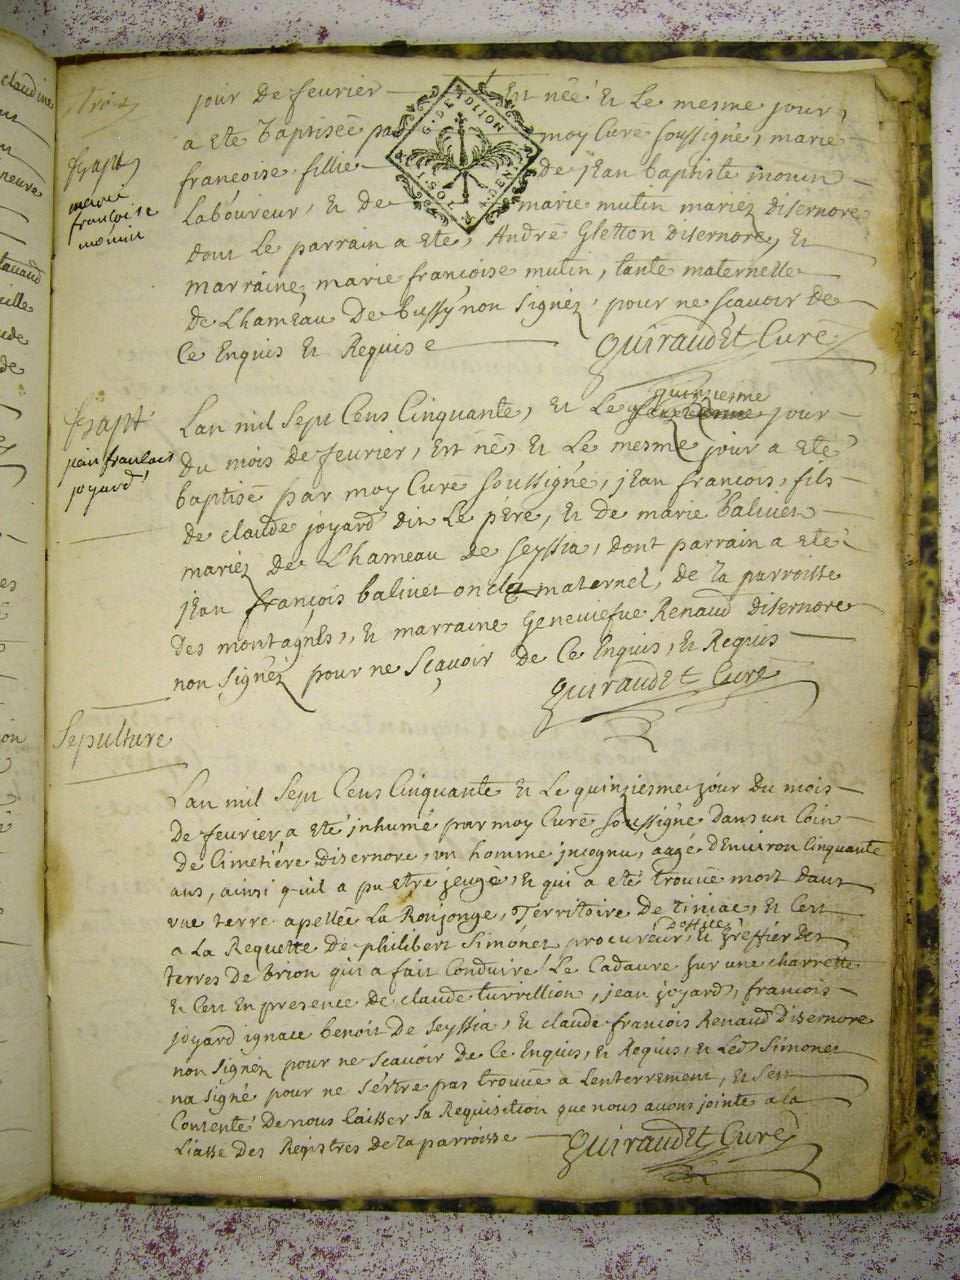 trois
jour De fevrier Est née Et Le mesme jour,
a Ete baptiseé par moy Curé soussigné, marie
francoise fillie de jean baptiste mouin
Laboureur, Et de marie mutin mariez disernore
dont Le parrain a ete, André Gletton disernore, Et
marraine marie francoise mutin, tante maternelle
de Lhameau De bussy non signez, pour ne scavoir de
Ce Enquis Et Requis
Guiraudet Curé
G. DE DIJON
Bapt
marie
francoise
mouin
Bapt
jean francois
joyard
quinziesme
Lan mil sept Cens Cinquante, Et Le jour
du mois de fevrier, Est né, Et Le mesme jour a ete
baptisé par moy Curé soussigné, jean francois, fils
de claude joyard dit Le pére, Et de marie balivet
mariez de Lhameau de seyssia, dont parrain a ete
jean françois balivet oncle maternel, de la parroisse
des montagnes, Et marraine Geneviefve Renaud disernore
non signéz pour ne Sçavoir de Ce Enquis, Et Requis
Guiraudet Curé
Sepulture
Lan mil sept Cens Cinquante Et Le quinziesme jour du mois
de fevrier a eté inhumé par moy Curé soussigné dans un Coin
de Cimetiére disernore, un homme incognu, aagé d'Environ Cinquante
ans, ainsi quil a pu etre jeuge, Et qui a eté trouvé mort dans
une terre apelleé La Roujonge, Territoire de tiniac, Et Cest
d'office
a La Requette de philibert Simonet procureur, Et greffier des
terres de brion qui a fait Conduire Le Cadavre sur une charrette
Et Cest En presence de claude turrillion, jean joyard, francois
joyard ignace benoit de seyssia, Et claude francois Renaud disernore
non signez pour ne scavoir de Ce Enquis, Et Requis, Et Led Simonet
na signé pour ne s'étre pas trouvé a Lenterrement, Et sest
Contenté De nous laisser sa Requisition que nous avons jointe a la
Liasse des Registres de la parroisse
Guiraudet Curé